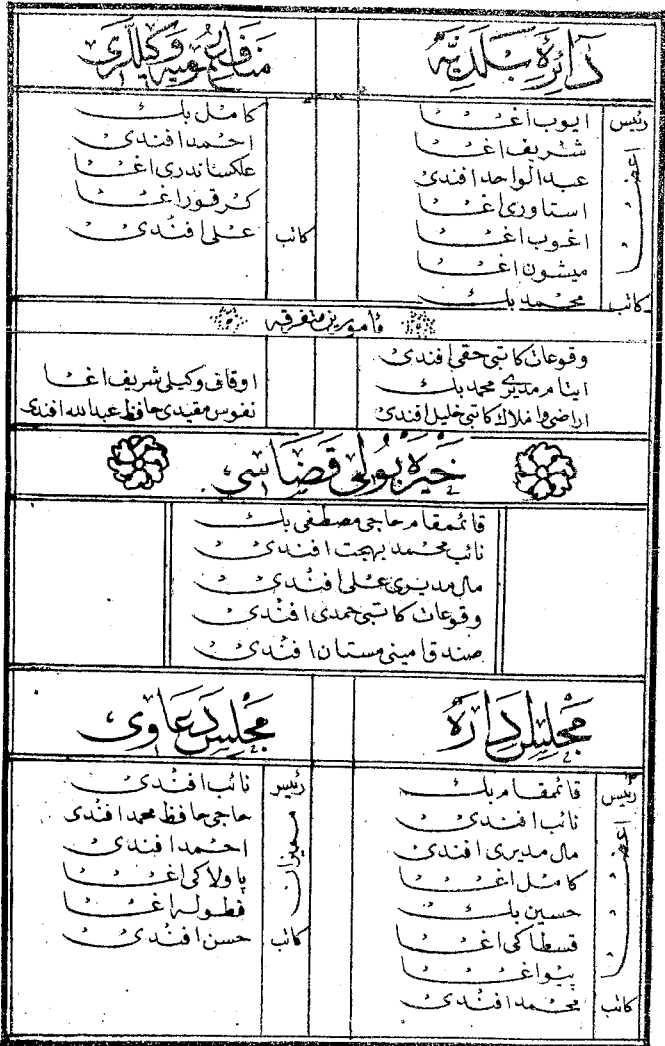 دائرۀ بلدیه
رئیس ایوب اغا
اعضا شریف اغا
عبدالواحد افندی
استاوری اغا
اغوب اغا
میشون اغا
کاتب محمد بك
منافع عمومیه وکیللری
کامل بك
احمد افندی
علکساندری اغا
کرقور اغا
کاتب علی افندی
مأمورین متفرقه
وقوعات کاتبی حقی افندی
ایتام مدیری محمد بك
اراضی واملاك کاتبی خلیل افندی
اوقاف وکیلی شریف اغا
نفوس مقیدی حافظ عبدالله افندی
خیره بولی قضاسی
قائمقام حاجی مصطفی بك
نائب محمد بهجت افندی
مال مدیری علی افندی
وقوعات کاتبی حمدی افندی
صندق امینی مستان افندی
مجلس اداره
رئیس قائمقام بك
اعضا نائب افندی
مال مدیری افندی
کامل اغا
حسین بك
قسطاکی اغا
پیو اغا
کاتب محمد افندی
مجلس دعاوی
رئیس نائب افندی
ممیزان حاجی حافظ محمد افندی
احمد افندی
پاولاکی اغا
قطوله اغا
کاتب حسن افندی